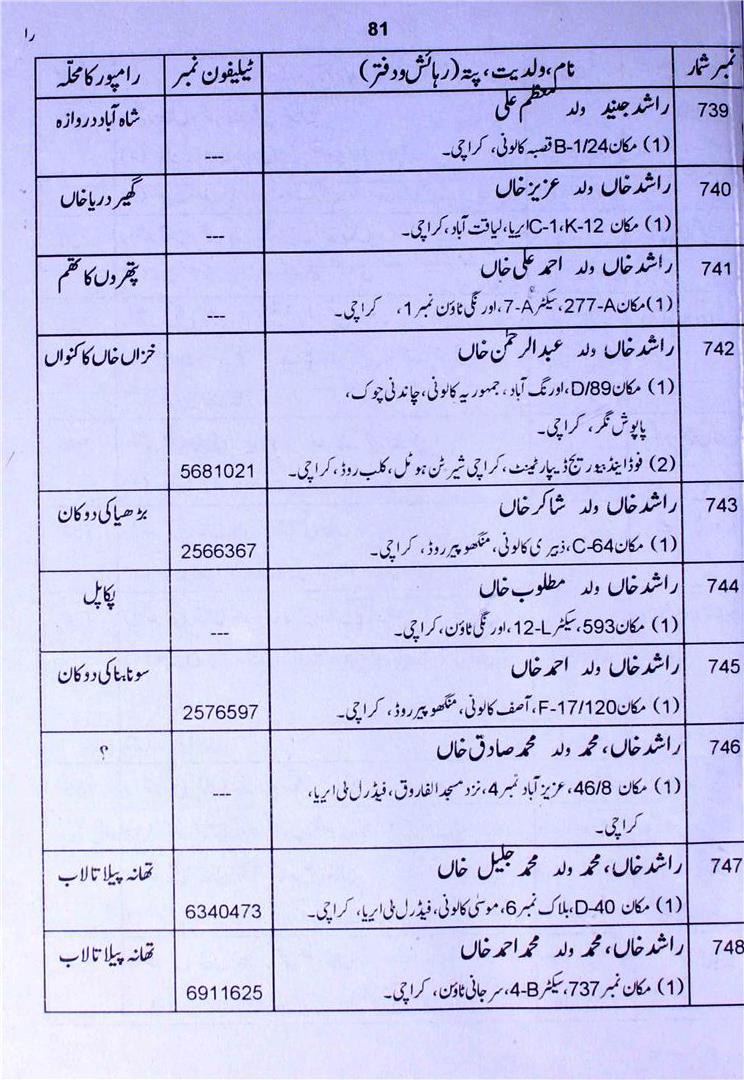 را
81
نمبر شمار نام، ولدیت، پتہ (رہائش و دفتر) ٹیلیفون نمبر رامپور کا محلّہ
739 راشد جنید ولد معظم علی شاہ آباد دروازہ
(1) مکان B-1/24 قصبہ کالونی، کراچی۔ ---
740 راشد خاں ولد عزیز خاں گھیر دریا خاں
(1) مکان C-1،K-12 ایریا، لیاقت آباد، کراچی۔ ---
741 راشد خاں ولد احمد علی خاں پتھروں کا تھم
(1) مکان 277-A، سیکٹر 7-A، اورنگی ٹاؤن نمبر 1، کراچی۔ ---
742 راشد خاں ولد عبدالرحمٰن خاں خزاں خاں کا کنواں
(1) مکان D/89، اورنگ آباد، جمہوریہ کالونی، چاندنی چوک،
پاپوش نگر، کراچی۔
(2) فوڈ اینڈ بیوریج ڈیپارٹمینٹ، کراچی شیرٹن ہوٹل، کلب روڈ، کراچی۔ 5681021
743 راشد خاں ولد شاکر خاں بڑھیا کی دوکان
(1) مکان C-64، زبیری کالونی، منگھوپیر روڈ، کراچی۔ 2566367
744 راشد خاں ولد مطلوب خاں پکا پل
(1) مکان 593، سیکٹر 12-L، اورنگی ٹاؤن، کراچی۔ ---
745 راشد خاں ولد احمد خاں سوناہنا کی دوکان
(1) مکان F-17/120، آصف کالونی، منگھوپیر روڈ، کراچی۔ 2576597
746 راشد خاں، محمد ولد محمد صادق خاں ؟
(1) مکان 46/8، عزیز آباد نمبر 4، نزد مسجد الفاروق، فیڈرل بی ایریا، ---
کراچی۔
747 راشد خاں، محمد ولد محمد جلیل خاں تھانہ پیلا تالاب
(1) مکان D-40، بلاک نمبر 6، موسیٰ کالونی، فیڈرل بی ایریا، کراچی۔ 6340473
748 راشد خاں، محمد ولد محمد احمد خاں تھانہ پیلا تالاب
(1) مکان نمبر 737، سیکٹر 4-B، سرجانی ٹاؤن، کراچی۔ 6911625